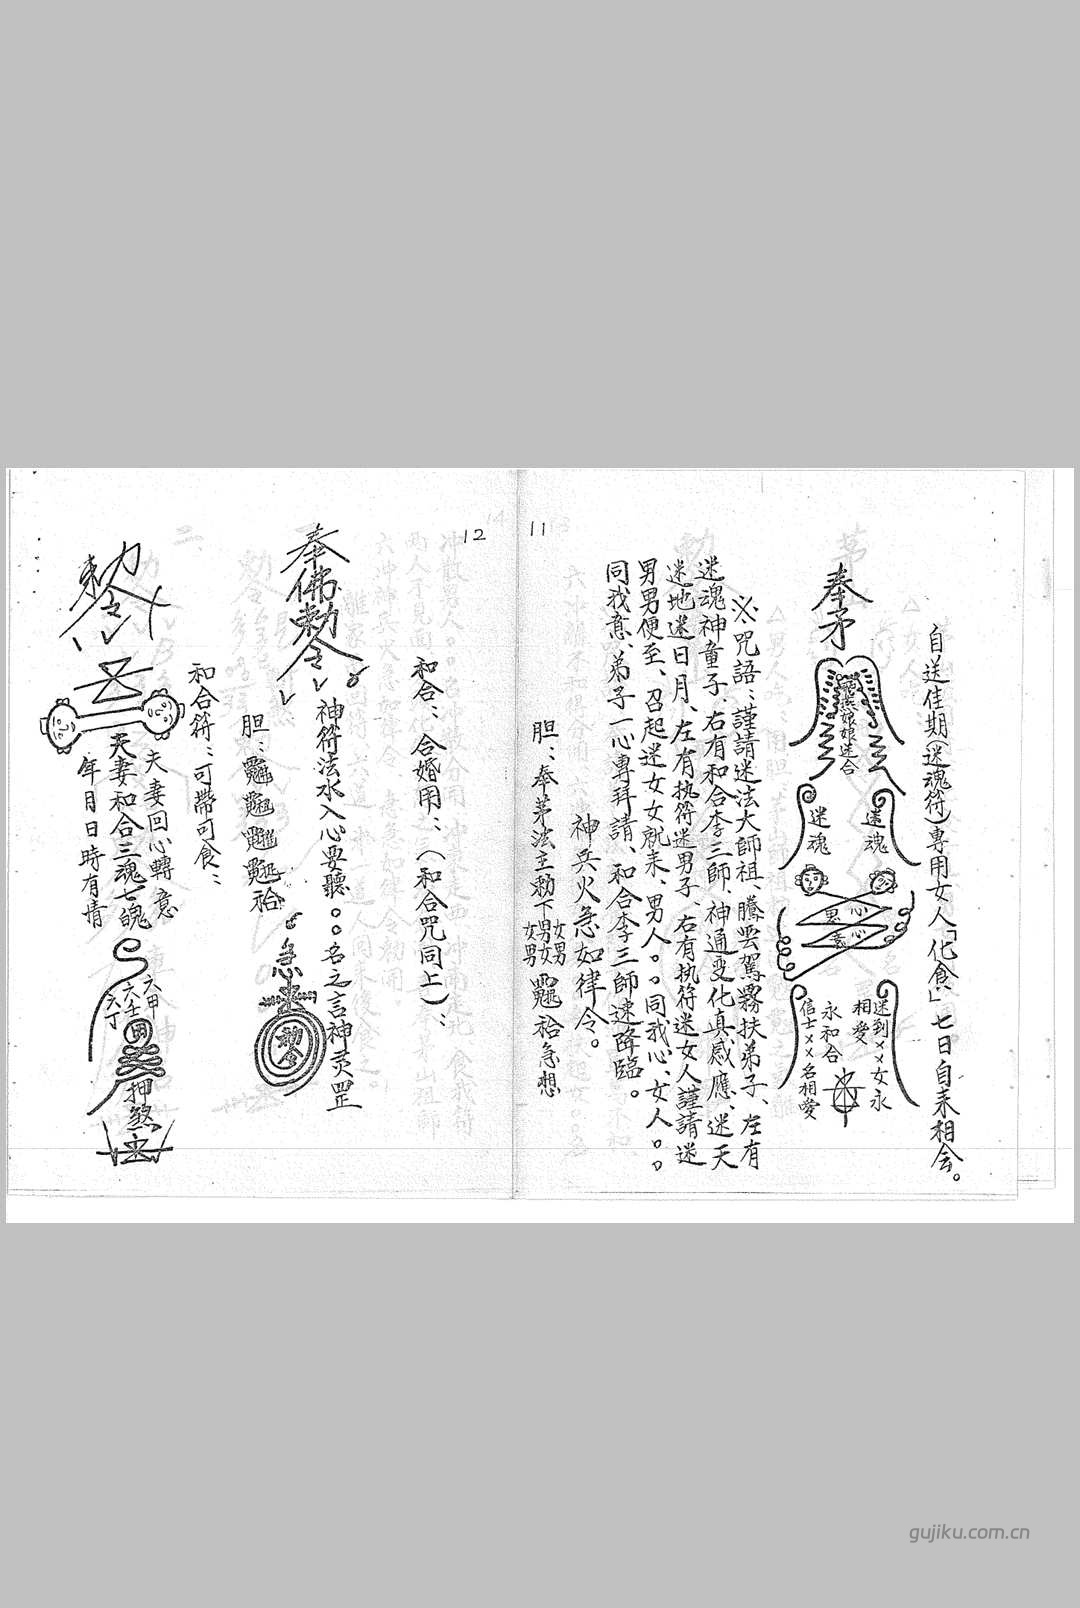 11
自送佳期（迷魂符）專用女人「化食」七日自来相会。
奉矛
娘娘迷合
迷魂
迷魂
心心
思意
迷到××女永
相愛
永和合
信士××名相愛
※咒語：謹請迷法大師祖、騰雲駕霧扶弟子、左有
迷魂神童子、右有和合李三師、神通变化真感應、迷天
迷地迷日月、左有执符迷男子、右有执符迷女人謹請迷
男男便至、召起迷女女就来、男人。。同我心、女人。。
同我意、弟子一心專拜請、和合李三師速降臨。
神兵火急如律令。
胆：奉茅法主勅下
男女
女男
男女
女男
袷急想
12
和合：合婚用：（和合咒同上）：
奉佛勅令
神符法水入心要聽。。名之言神灵罡
胆：
袷
急
勅令
和合符：可帶可食：
勅令
夫妻回心轉意
夫妻和合三魂七魄
年月日時有情
六甲
六壬
六丁
押煞